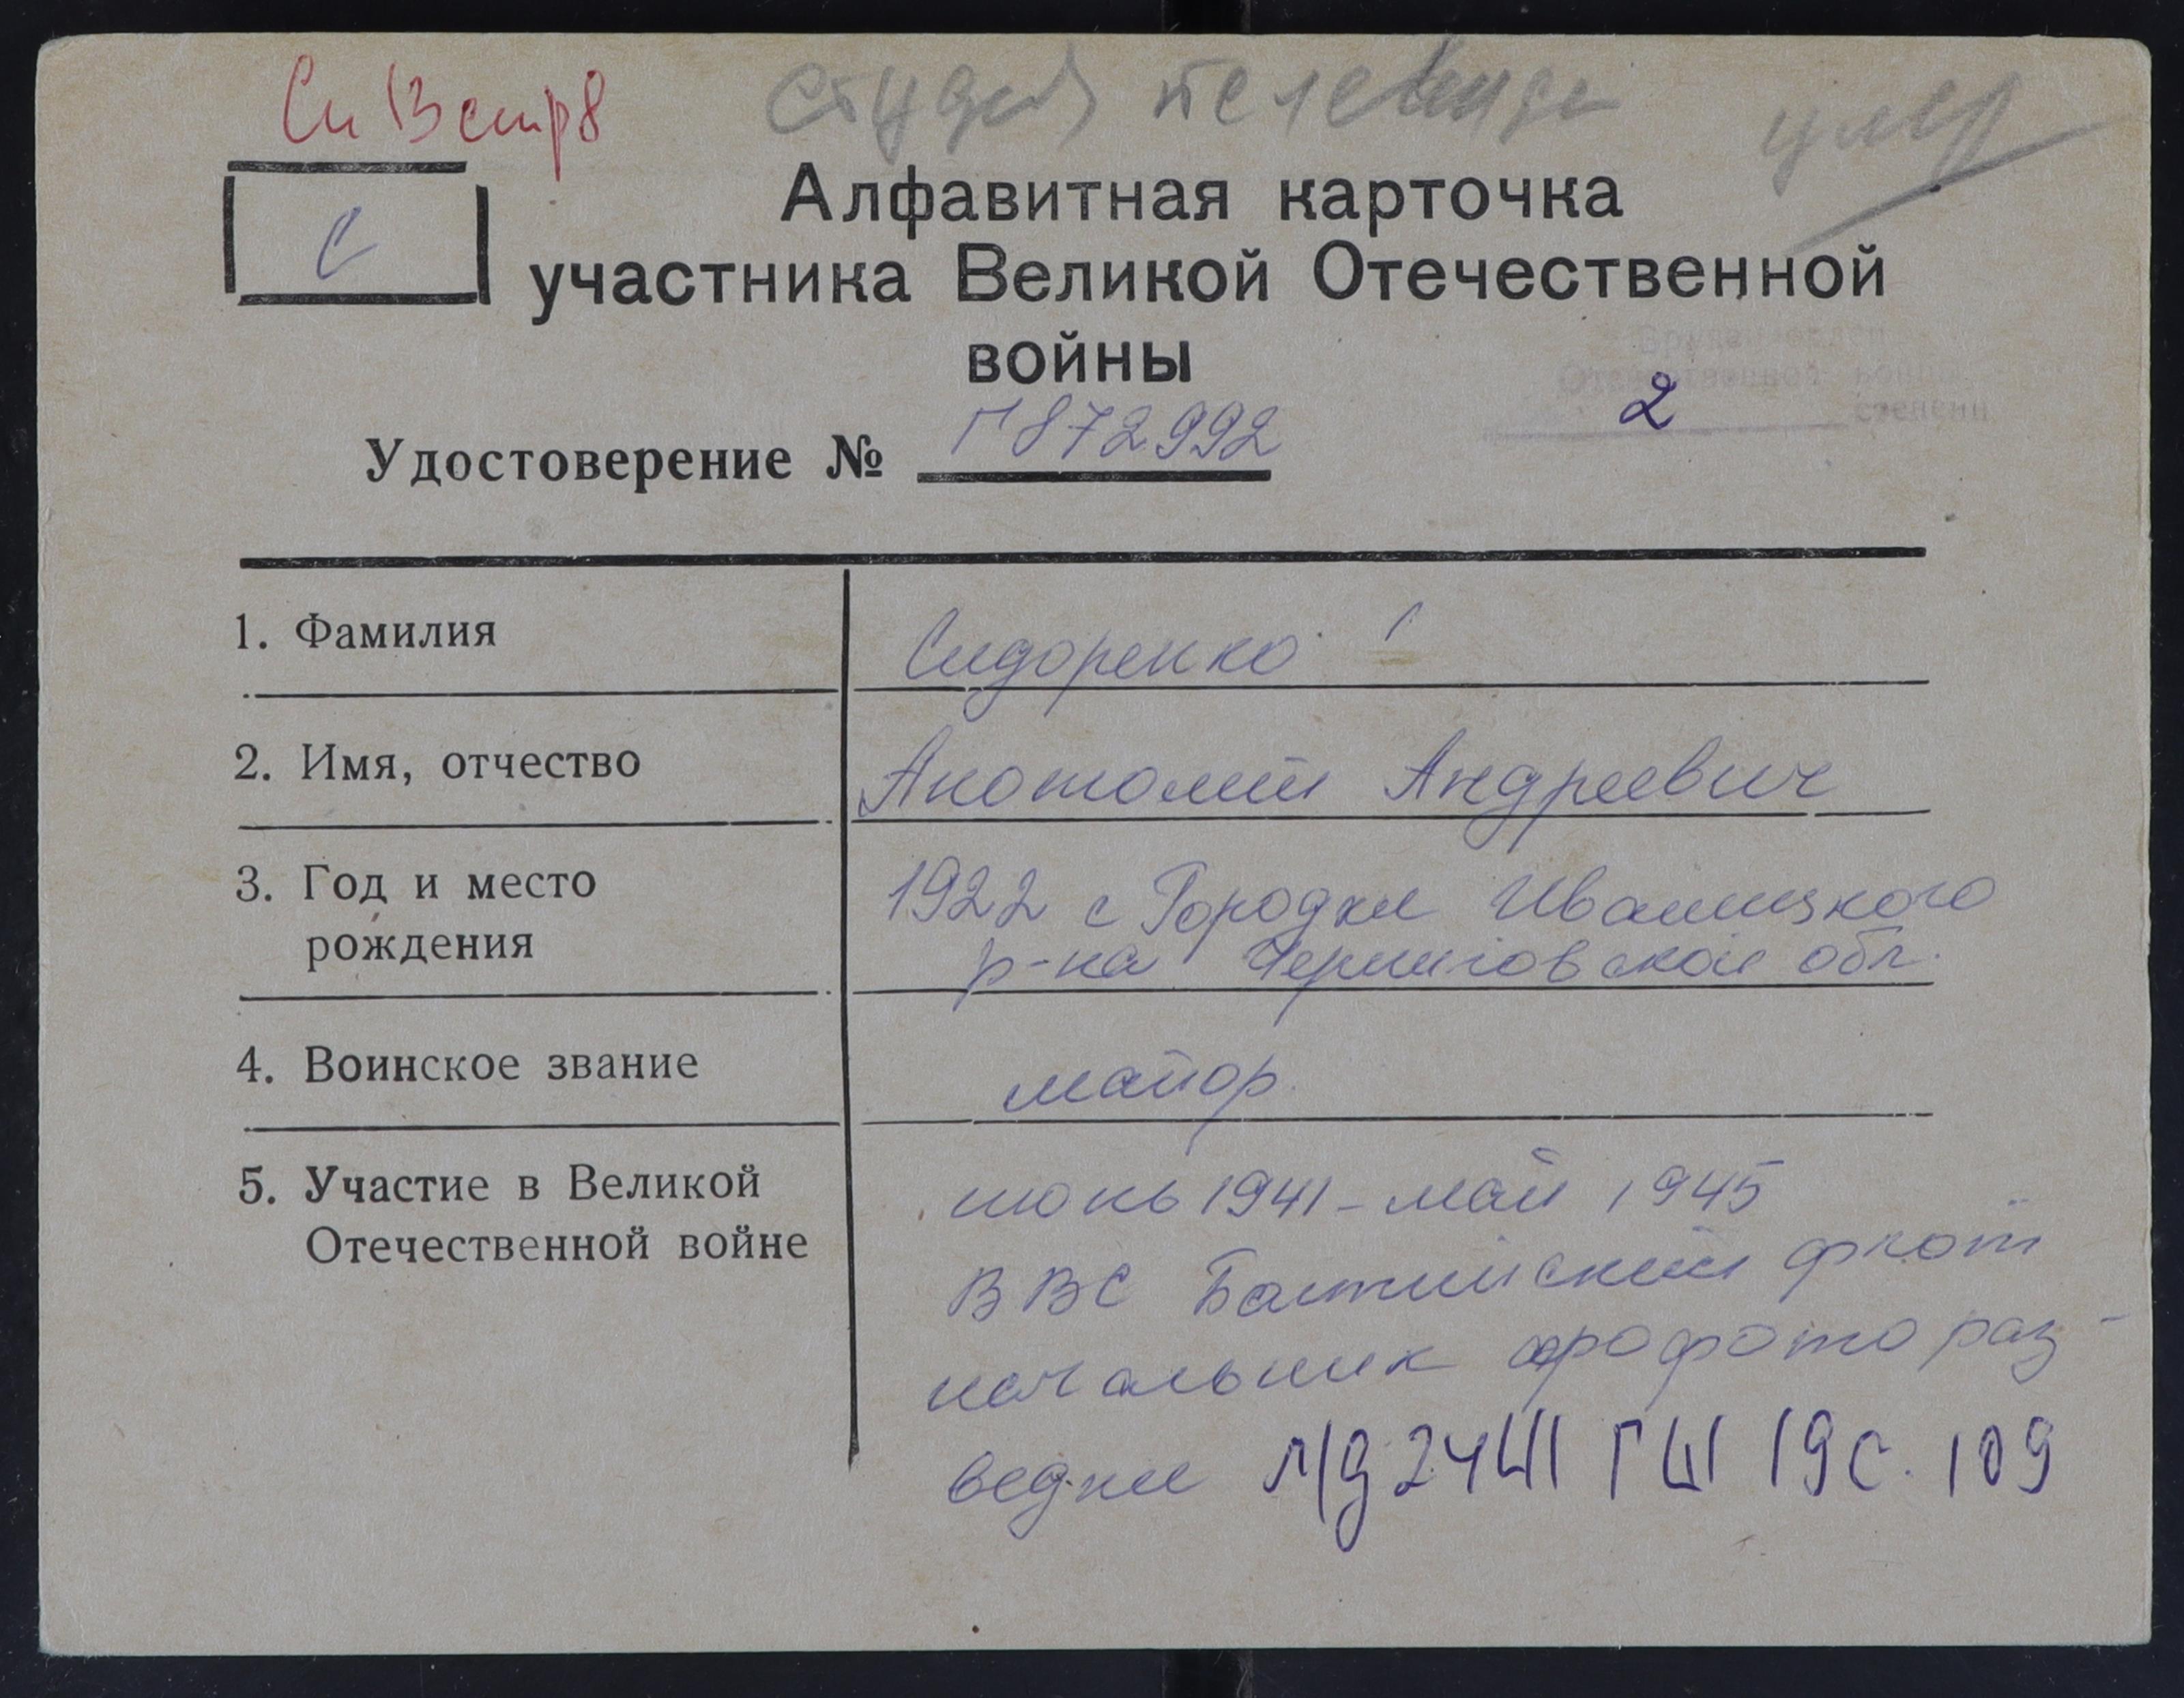 студия телевиде
умер
С
Алфавитная карточка
участника Великой Отечественной
войны
Отечественной войны
2 степени
Удостоверение № Г 872992
1. Фамилия Сидоренко
2. Имя, отчество Анатолий Андреевич
3. Год и место 1922 с Городки Иваницкого
рождения р-на Черниговской обл.
4. Воинское звание майор
5. Участие в Великой июнь 1941 - май 1945
Отечественной войне ВВС Балтийский флот
начальник аэрофотораз-
ведки 109